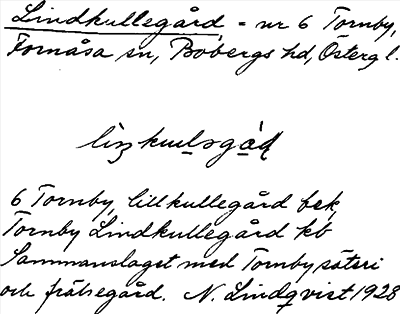 Lindkullegård = nr 6 Tornby,
Fornåsa sn, Bobergs hd, Österg l.
6 Tornby, lillkullegård bek,
Tornby Lindkullegård kb
Sammanslaget med Tornby säteri
och frälsegård. N. Lindqvist 1928